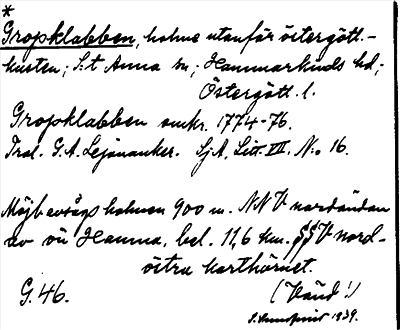 *
Gropklabben, holme utanför östergött.-
kusten; S:t Anna sn; Hammarkinds hd;
Östergött. l.
Gropklabben omkr. 1774-76.
Tral. G. A. Lejonanker. Sj A, Litt. VII. No 16.
Möjl. avsågs holmen 900 m. NNV nordändan
av ön Hamna, bel. 11,6 km. SSV nord-
östra karthörnet.
G. 46.
(Vänd!)
1939.